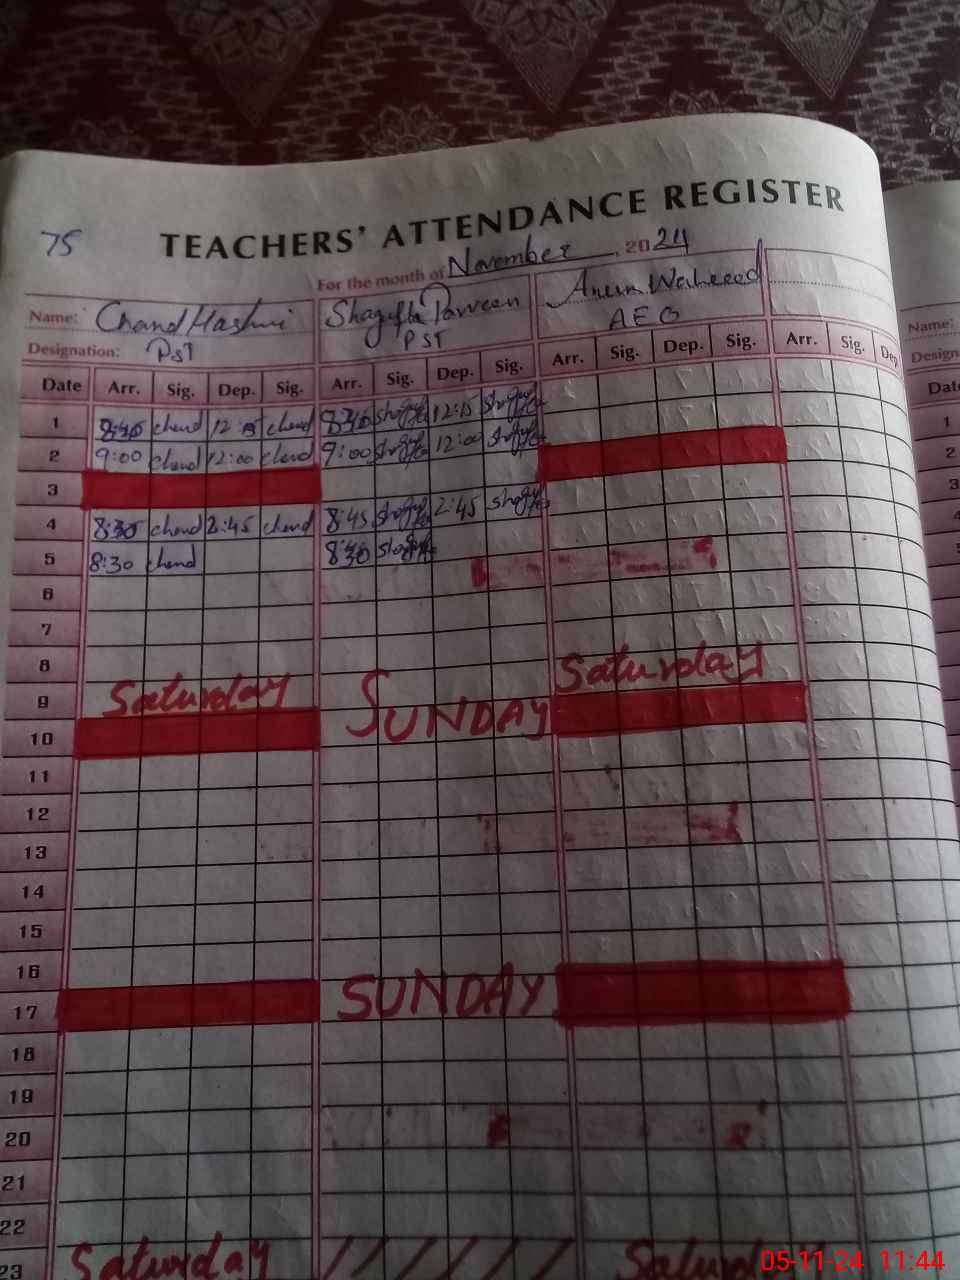 75
TEACHERS' ATTENDANCE REGISTER
For the month of November, 2024
Name: Chand Hashmi Shagufta Parveen Anum Waheed Name:
Designation: PST PST AEO Design
Date Arr. Sig. Dep. Sig. Arr. Sig. Dep. Sig. Arr. Sig. Dep. Sig. Arr. Sig. Dep Date
1 chand chand 12:15 1
2 9:00 chand 12:00 chand 9:00 12:00 2
3 3
4 8:30 chand 2:45 chand 8:45 2:45 4
5 8:30 chand 8:30
6
7
8 Saturday
9 Saturday SUNDAY
10
11
12
13
14
15
16
17 SUNDAY
18
19
20
21
22
23 Saturday
05-11-24 11:44